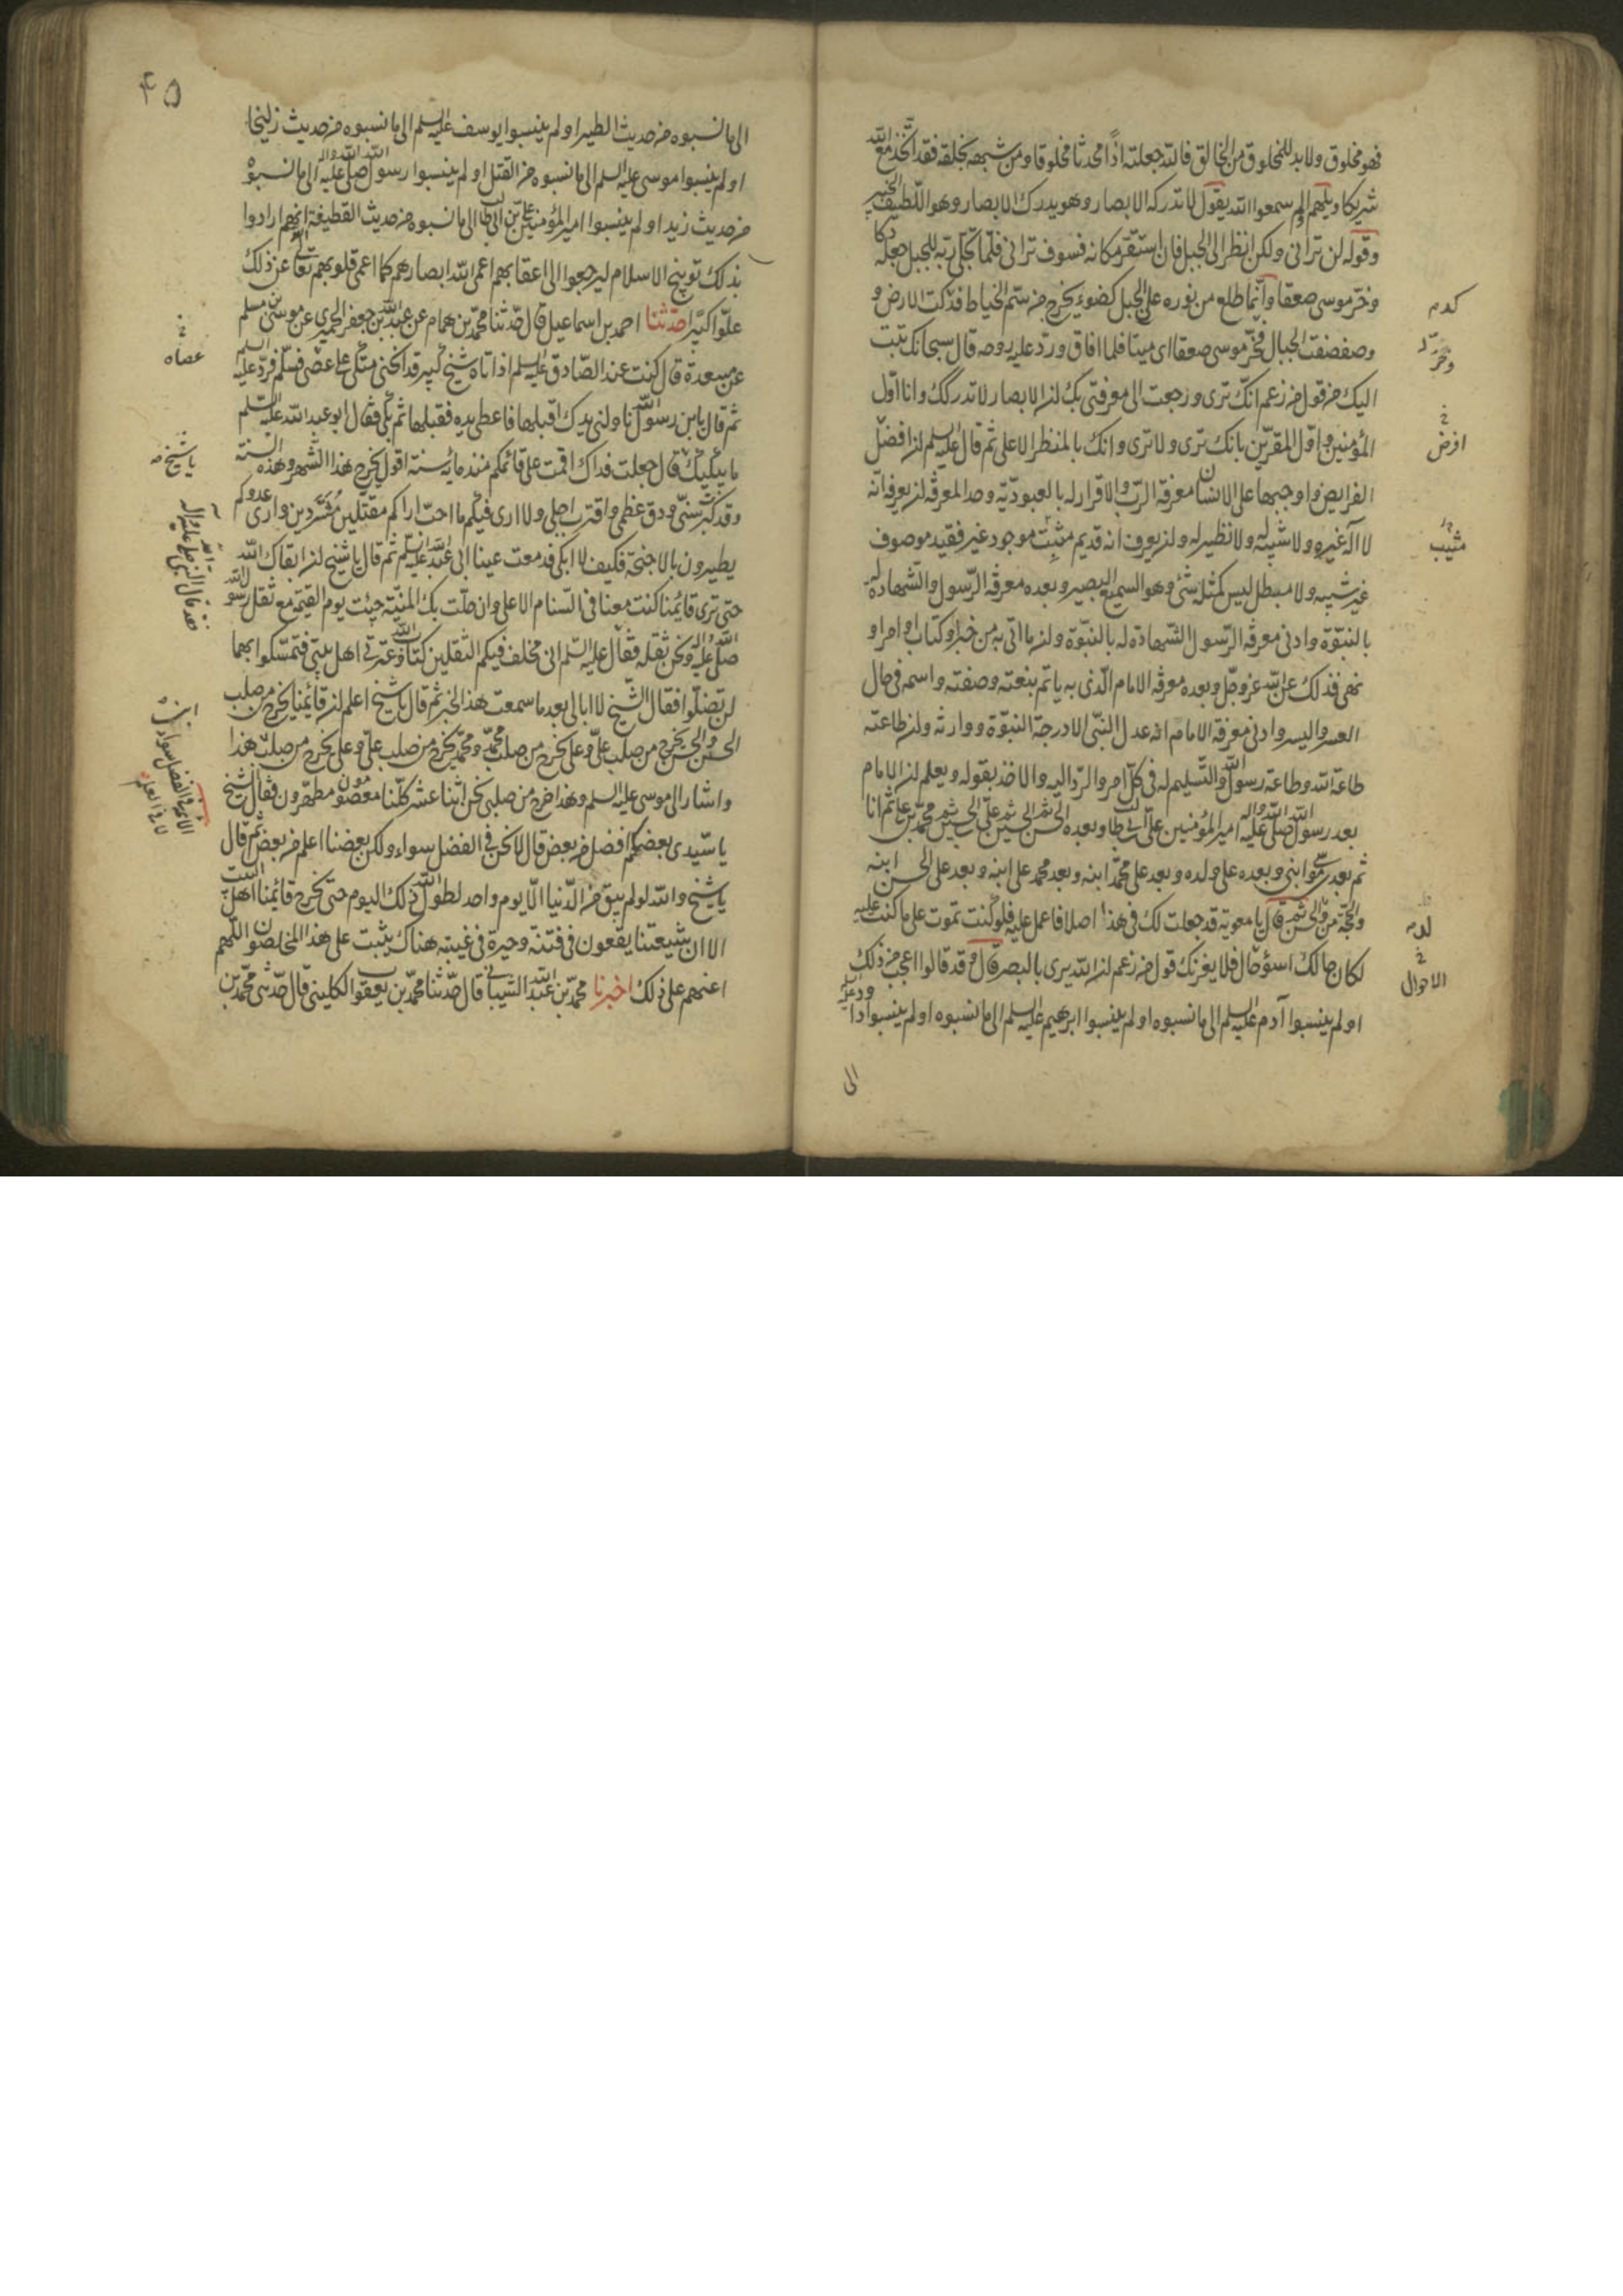 فهو مخلوق ولا بد للمخلوق من الخالق فالله جعلته اذاً محدثا مخلوقا ومن شبهه بخلقه فقد اتّخذ مع الله
شريكا ويلهم الم يسمعوا الله يقول لا تدركه الابصار وهو يدرك الابصار وهو اللّطيف الخبير
وقوله لن تراني ولكن انظر الى الجبل فان استقرّ مكانه فسوف تراني فلمّا تجلّى ربّه للجبل جعله دكا
وخرّ موسى صعقا وانّما طلع من نوره على الجبل كضوء يخرج من سمّ الخياط فدكّت الارض و
وصفصفت الجبال فخرّ موسى صعقا اى ميتا فلما افاق وردّ عليه روحه قال سبحانك تبت
اليك من قول من زعم انّك ترى ورجعت الى معرفتى بك ان الابصار لا تدركك وانا اوّل
المؤمنين واوّل المقرّين بانك ترى ولا ترى وانك بالمنظر الاعلى ثم قال عليه السلم ان افضل
الفرايض واوجبها على الانسان معرفة الربّ والاقرار له بالعبوديّة وحد المعرفة ان يعرف انّه
لا اله غيره ولا شبيه له ولا نظير له وان يعرف انه قديم مثبت موجود غير فقيد موصوف
غير شبيه ولا مبطل ليس كمثله شئ وهو السميع البصير وبعده معرفة الرّسول والشّهادة له
بالنبوّة وادنى معرفة الرّسول الشّهادة له بالنبوّة وان ما اتى به من خبر او كتاب او امر او
نهى فذلك عن الله عز وجل وبعده معرفة الامام الّذى به ياتم بنعته وصفته واسمه في حال
العسر واليسر وادنى معرفة الامام انه عدل النّبى الا درجة النبوّة ووارثه وان طاعته
طاعة الله وطاعة رسول الله والتّسليم له في كلّ امر والردّ اليه والاخذ بقوله ويعلم ان الامام
بعد رسول الله صلى الله عليه واله امير المؤمنين على بن ابي طالب وبعده الحسن ثم الحسين ثم على بن الحسين ثم محمّد بن على ثم انا
ثم بعدى موسى ابنى وبعده على ولده وبعد على محمّد ابنه وبعد محمد على ابنه وبعد على الحسن ابنه
والحجّة من ولد الحسن ثم قال يا معوية قد جعلت لك في هذا اصلا فاعمل عليه فلو كنت تموت على ما كنت عليه
لكان حالك اسؤ حال فلا يغرّنك قول من زعم ان الله يرى بالبصر قال وقد قالوا اعجب من ذلك
او لم ينسبوا آدم عليه السلم الى ما نسبوه او لم ينسبوا ابرهيم عليه السلم الى ما نسبوه او لم ينسبوا داود عليه السلم
الى
كذا
وخرّ
افرض
مثيب
الاحوال
٤٥
الى ما نسبوه من حديث الطير او لم ينسبوا يوسف عليه السلم الى ما نسبوه من حديث زليخا
او لم ينسبوا موسى عليه السلم الى ما نسبوه من القتل او لم ينسبوا رسول الله صلى الله عليه واله الى ما نسبوه
من حديث زيد او لم ينسبوا امير المؤمنين على بن ابي طالب الى ما نسبوه من حديث القطيفة انهم ارادوا
بذلك توبيخ الاسلام ليرجعوا الى اعقابهم اعمى الله ابصارهم كما اعمى قلوبهم تعالى الله عن ذلك
علوّا كبيرا حدّثنا احمد بن اسماعيل قال حدّثنا محمّد بن همام عن عبد الله بن جعفر الحميرى عن موسى بن مسلم
عن مسعدة قال كنت عند الصّادق عليه السلم اذ اتاه شيخ كبير قد انحنى متكئ على عصى فسلّم فردّ عليه السلم
ثم قال يا بن رسول الله ناولنى يدك اقبلها فاعطى يده فقبلها ثم بكى فقال ابو عبد الله عليه السّلم
ما يبكيك قال جعلت فداك اقمت على قائمكم منذ مائة سنة اقول يخرج هذا الشهر وهذه السنة
وقد كبرت سنّى ودق عظمى واقترب اجلى ولا ارى فيكم ما احبّ اراكم مقتّلين مشرّدين وارى عدوكم
يطيرون بالاجنحة فكيف لا ابكى فدمعت عينا ابى عبد الله عليه السلم ثم قال يا شيخ ان ابقاك الله
حتى ترى قائمنا كنت معنا في السّنام الاعلى وان حلّت بك المنيّة جئت يوم القيمة مع ثقل رسول الله
صلى الله عليه واله ونحن ثقله فقال عليه السّلم انى مخلف فيكم الثقلين كتاب الله وعترتى اهل بيتى فتمسّكوا بهما
لن تضلّوا فقال الشّيخ لا ابالى بعد ما سمعت هذا الخبر ثم قال يا شيخ اعلم ان قائمنا يخرج من صلب
الحسن والحسن يخرج من صلب علىّ وعلى يخرج من صلب محمّد ومحمّد يخرج من صلب علىّ وعلى يخرج من صلب هذا
واشار الى موسى عليه السلم وهذا خرج من صلبى نحن اثنا عشر كلّنا معصومون مطهّرون فقال الشيخ
يا سيّدى بعضكم افضل من بعض قال لا نحن في الفضل سواء ولكن بعضنا اعلم من بعض ثم قال
يا شيخ والله لو لم يبق من الدّنيا الّا يوم واحد لطوّل الله ذلك اليوم حتى يخرج قائمنا اهل البيت
الا ان شيعتنا يقعون في فتنة وحيرة في غيبته هناك يثبت على هذا المخلصون اللّهم
اعنهم على ذلك اخبرنا محمّد بن عبد الله الشيباني قال حدّثنا محمّد بن يعقوب الكلينى قال حدّثنى محمّد بن
عصاه
يا شيخ
فقد قال النبى صلى الله عليه واله